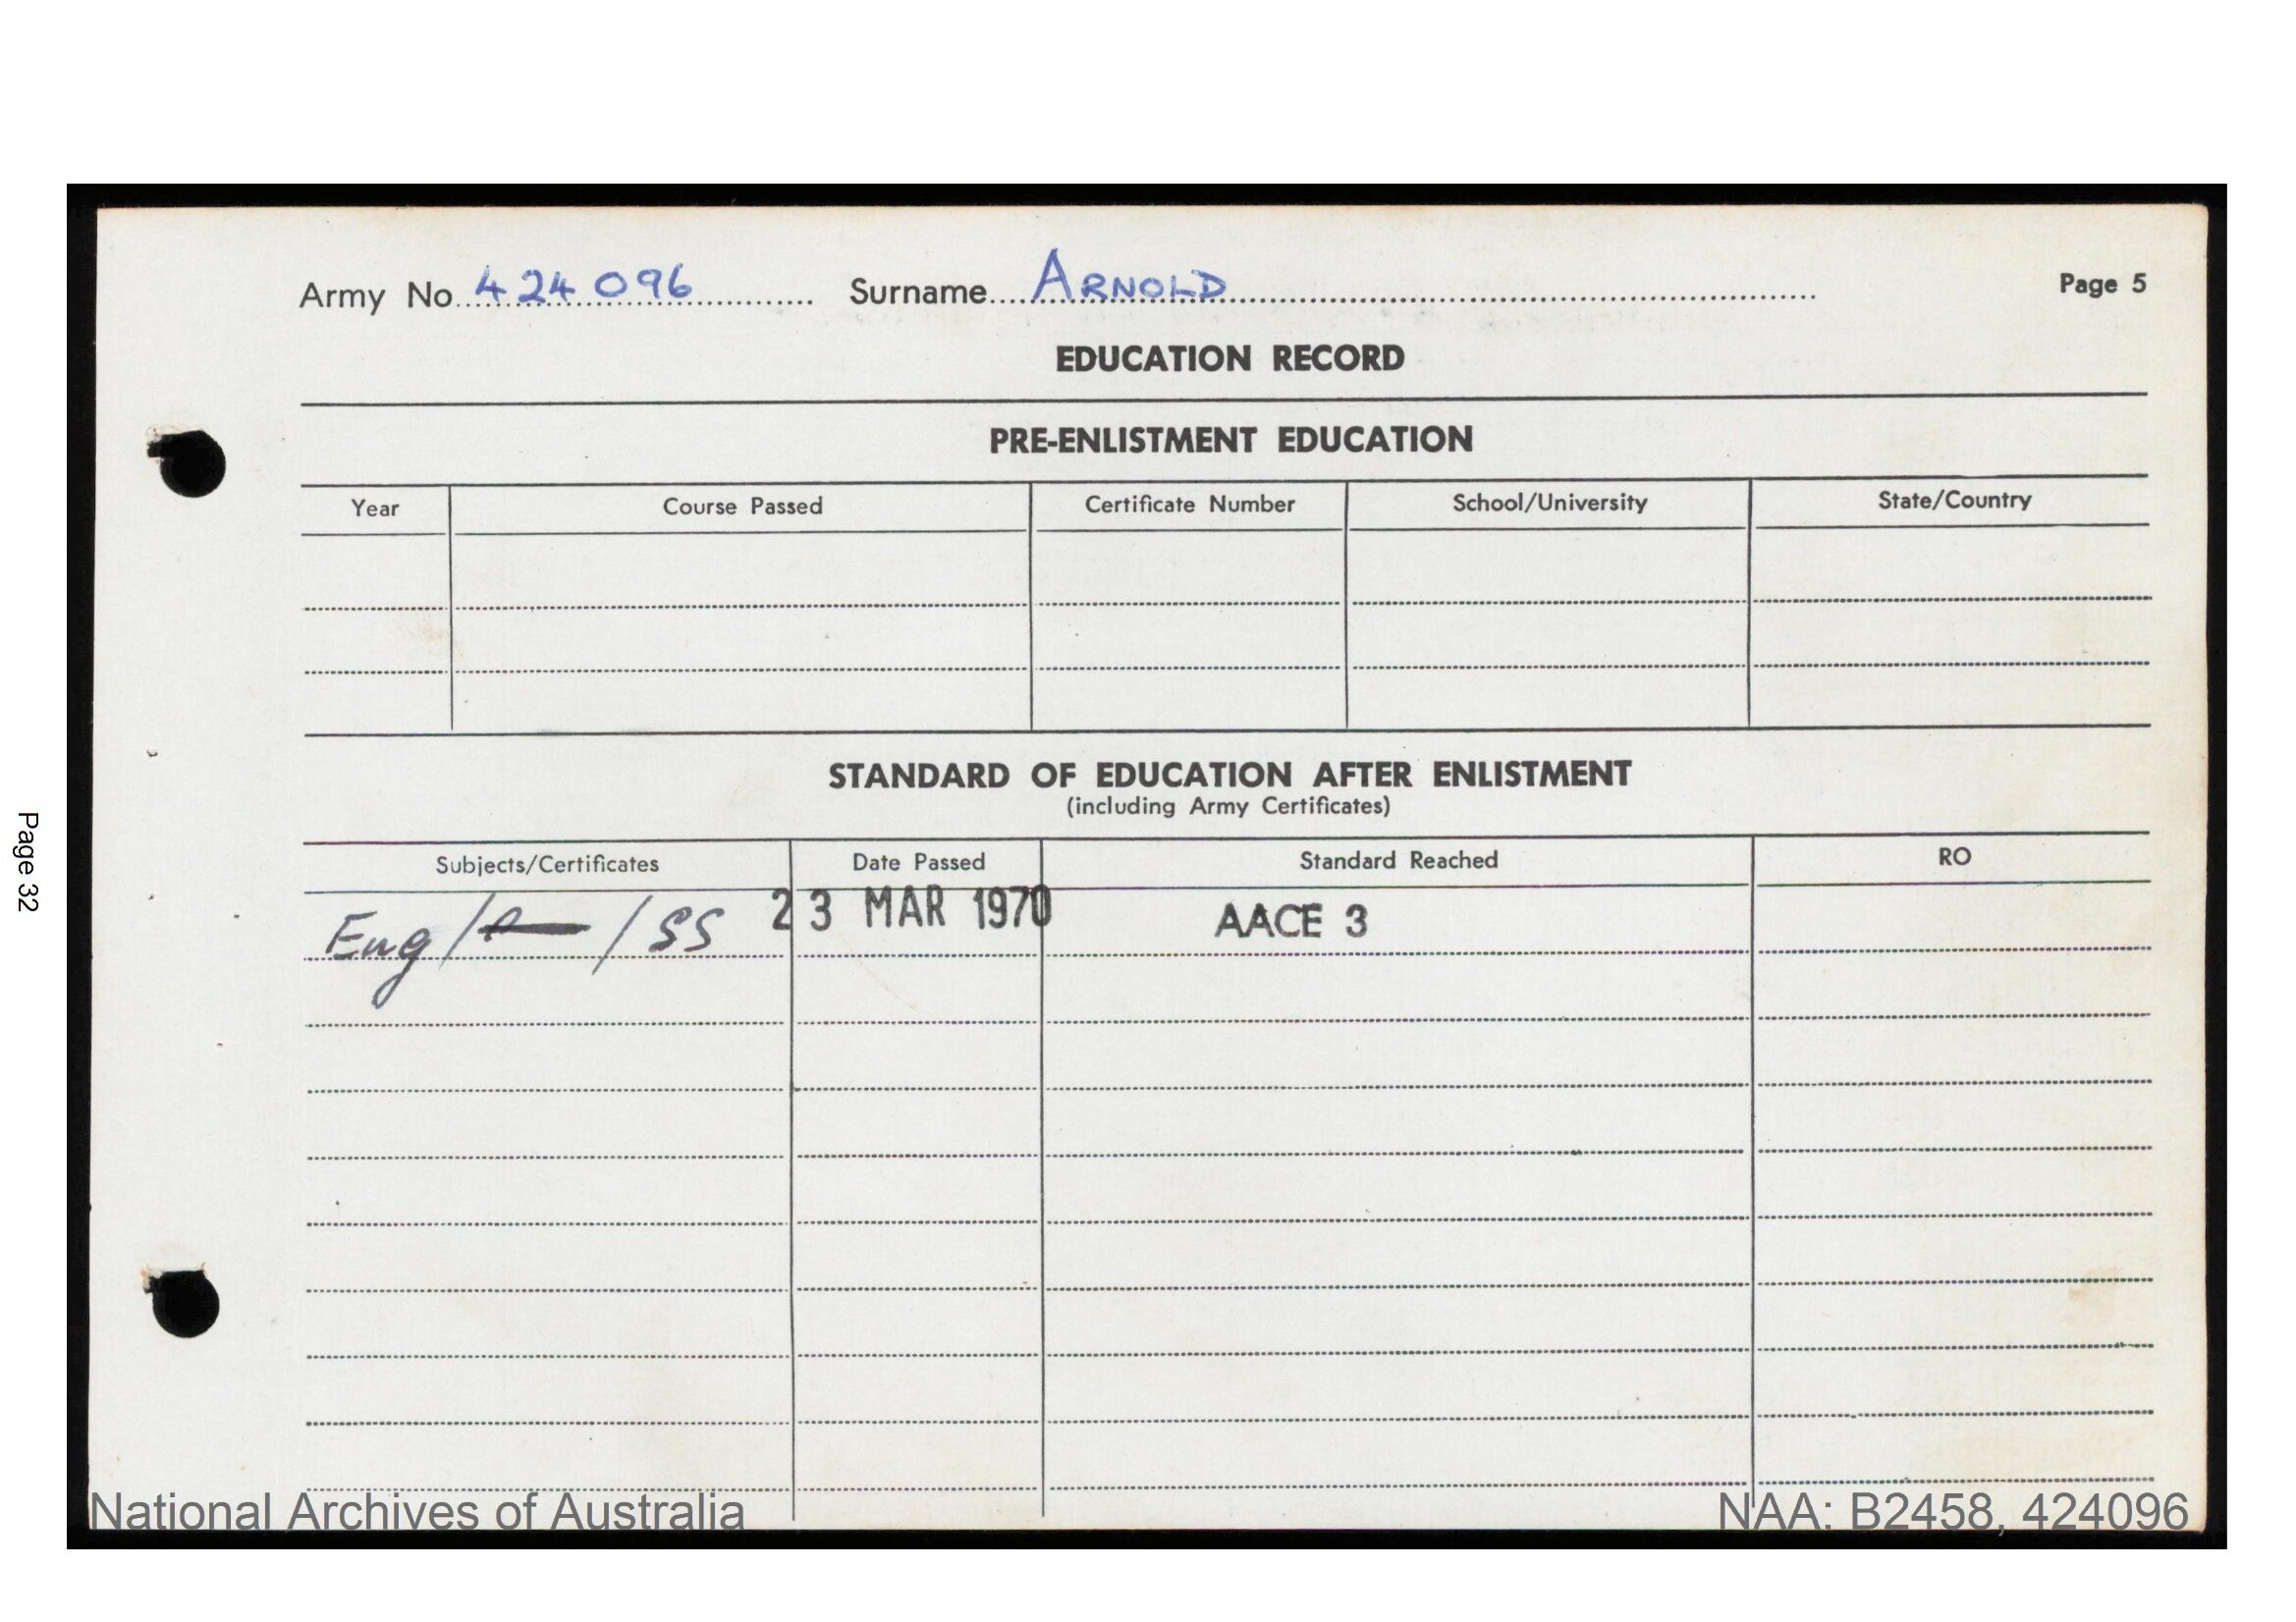 Army No. 424096 Surname ARNOLD Page 5
EDUCATION RECORD
PRE-ENLISTMENT EDUCATION
Year Course Passed Certificate Number School/University State/Country
STANDARD OF EDUCATION AFTER ENLISTMENT
(including Army Certificates)
Subjects/Certificates Date Passed Standard Reached RO
Eng / / SS 23 MAR 1970 AACE 3
Page 32
National Archives of Australia NAA: B2458, 424096